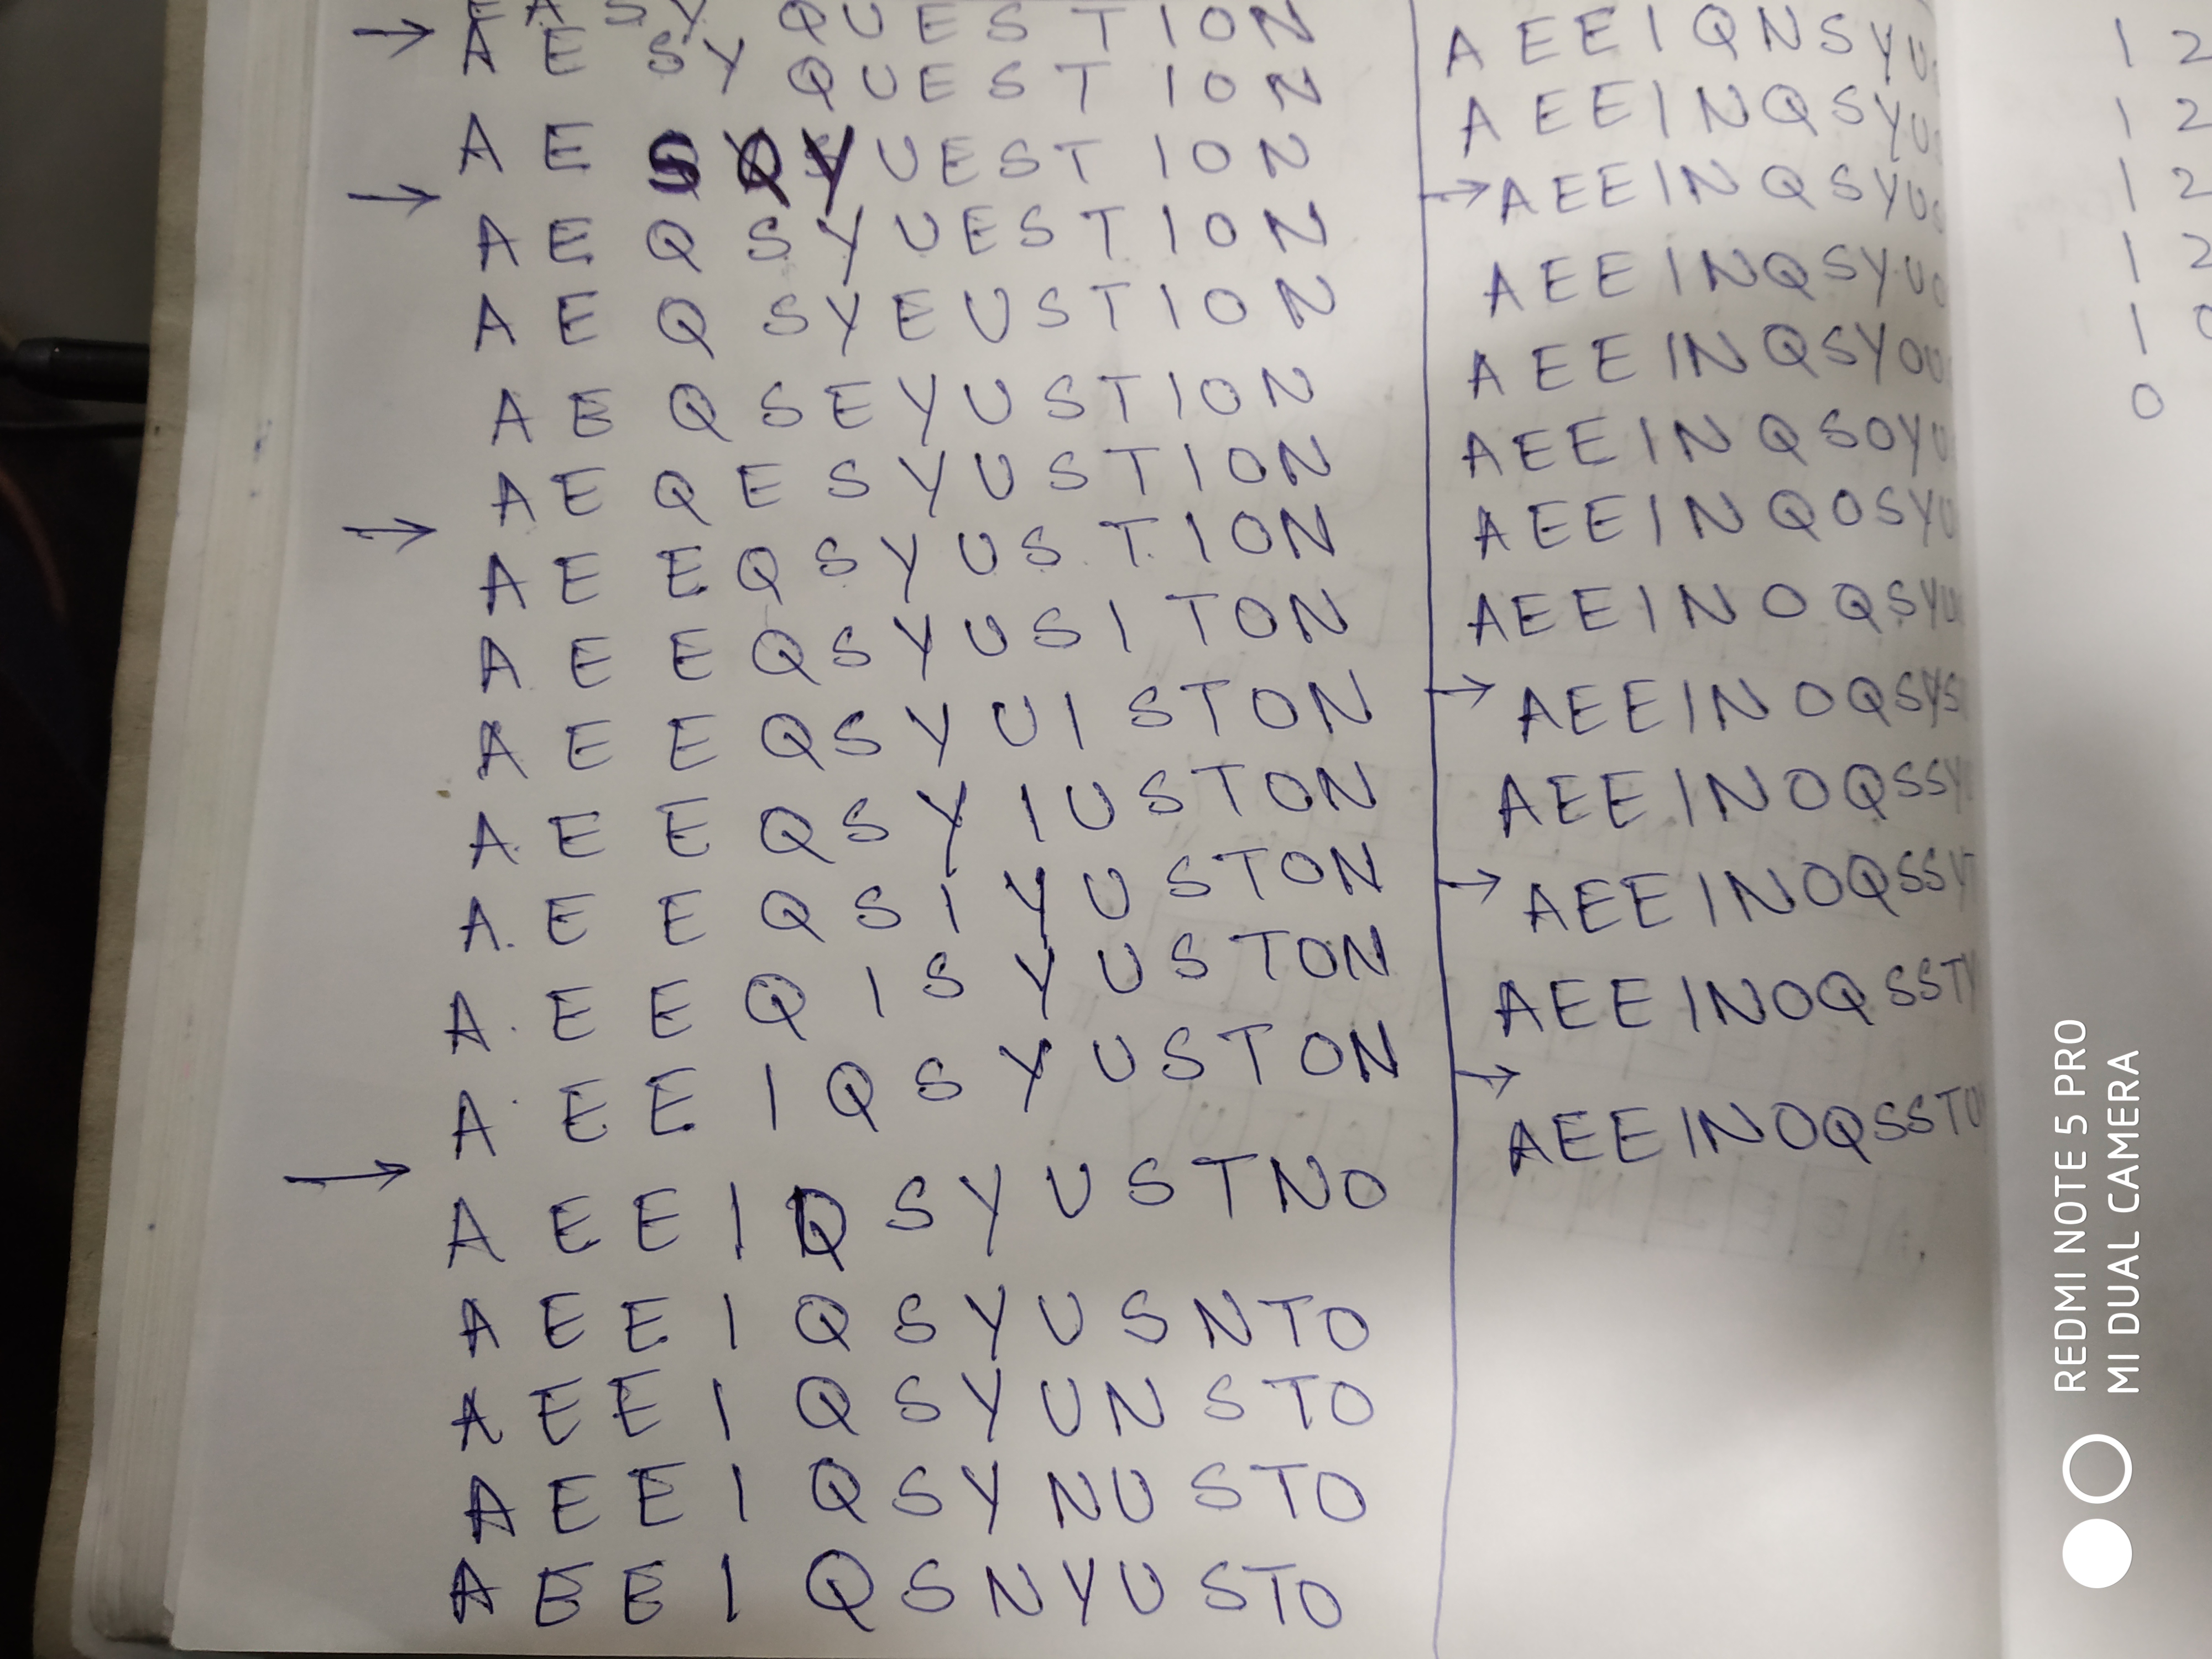 E A S Y Q U E S T I O N
A E S Y Q U E S T I O N
A E S Q Y U E S T I O N
A E Q S Y U E S T I O N
A E Q S Y E U S T I O N
A E Q S E Y U S T I O N
A E Q E S Y U S T I O N
A E E Q S Y U S T I O N
A E E Q S Y U S I T O N
A E E Q S Y U I S T O N
A E E Q S Y I U S T O N
A E E Q S I Y U S T O N
A E E Q I S Y U S T O N
A E E I Q S Y U S T O N
A E E I Q S Y U S T N O
A E E I Q S Y U S N T O
A E E I Q S Y U N S T O
A E E I Q S Y N U S T O
A E E I Q S N Y U S T O
A E E I Q N S Y U
A E E I N Q S Y U
A E E I N Q S Y U
A E E I N Q S Y U
A E E I N Q S Y O U
A E E I N Q S O Y U
A E E I N Q O S Y U
A E E I N O Q S Y U
A E E I N O Q S Y S
A E E I N O Q S S Y
A E E I N O Q S S Y T
A E E I N O Q S S T
A E E I N O Q S S T U
1 2
1 2
1 2
1 2
1
0
REDMI NOTE 5 PRO
MI DUAL CAMERA